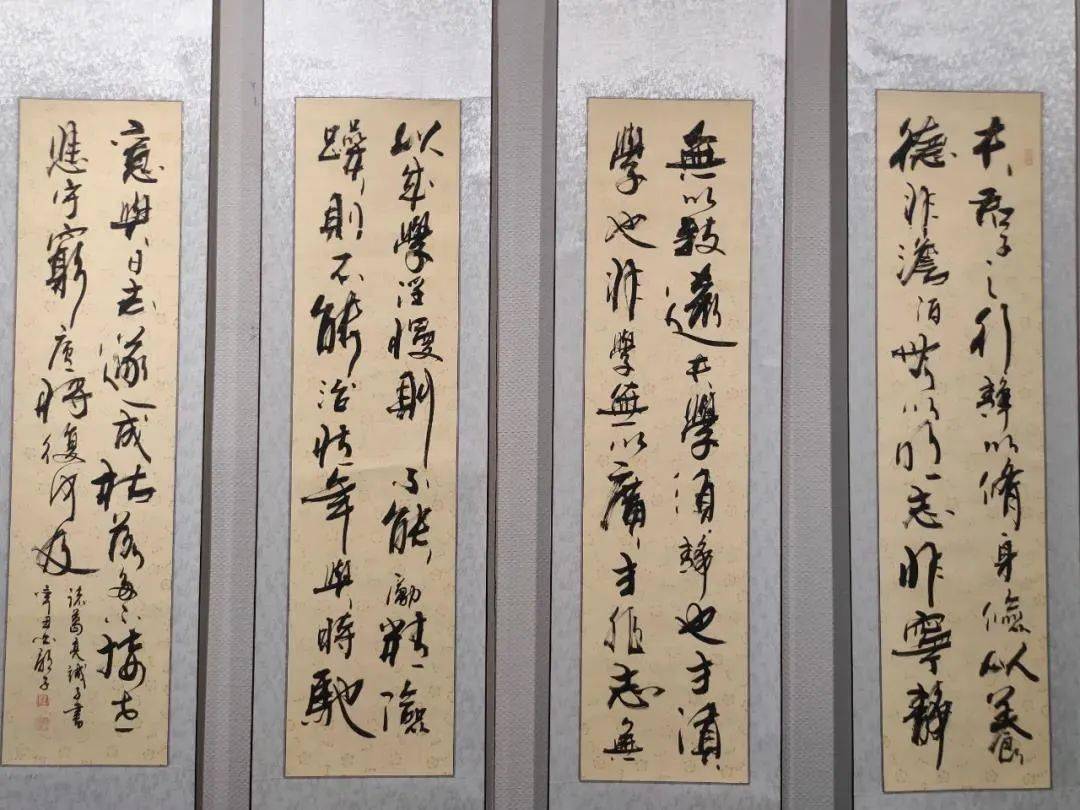 夫君子之行靜以脩身儉以養
德非澹泊無以明志非寧靜
無以致遠夫學須靜也才須
學也非學無以廣才非志無
以成學淫慢則不能勵精險
躁則不能治性年與時馳
意與日去遂成枯落多不接世
悲守窮廬將復何及
諸葛亮誡子書
辛丑